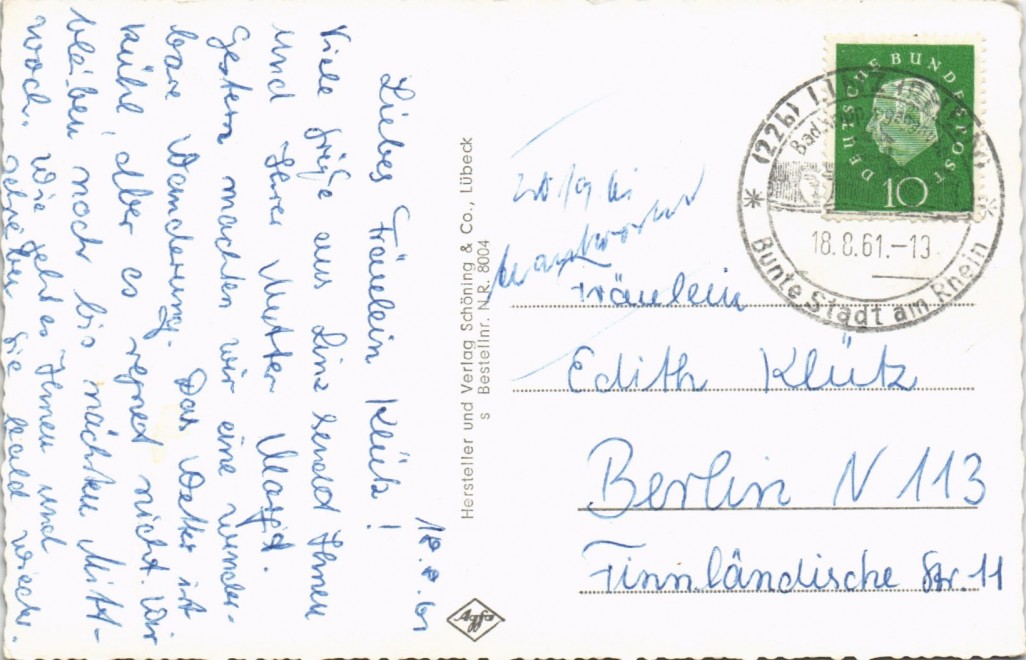 18.8.61
Liebes Fräulein Klütz!
Viele Grüße aus Linz sendet Ihnen
und Ihrer Mutter Margit.
Gestern machten wir eine wunder-
bare Wanderung. Das Wetter ist
kühl, aber es regnet nicht. Wir
bleiben noch bis nächsten Mitt-
woch. Wie geht es Ihnen und
sehen Sie bald wieder.
Hersteller und Verlag Schöning & Co., Lübeck
s Bestellnr. NR. 8004
Agfa
DEUTSCHE BUNDESPOST
10
(22b) LINZ (RHEIN)
18.8.61.-13
Bunte Stadt am Rhein
Fräulein
Edith Klütz
Berlin N 113
Finnländische Str. 11